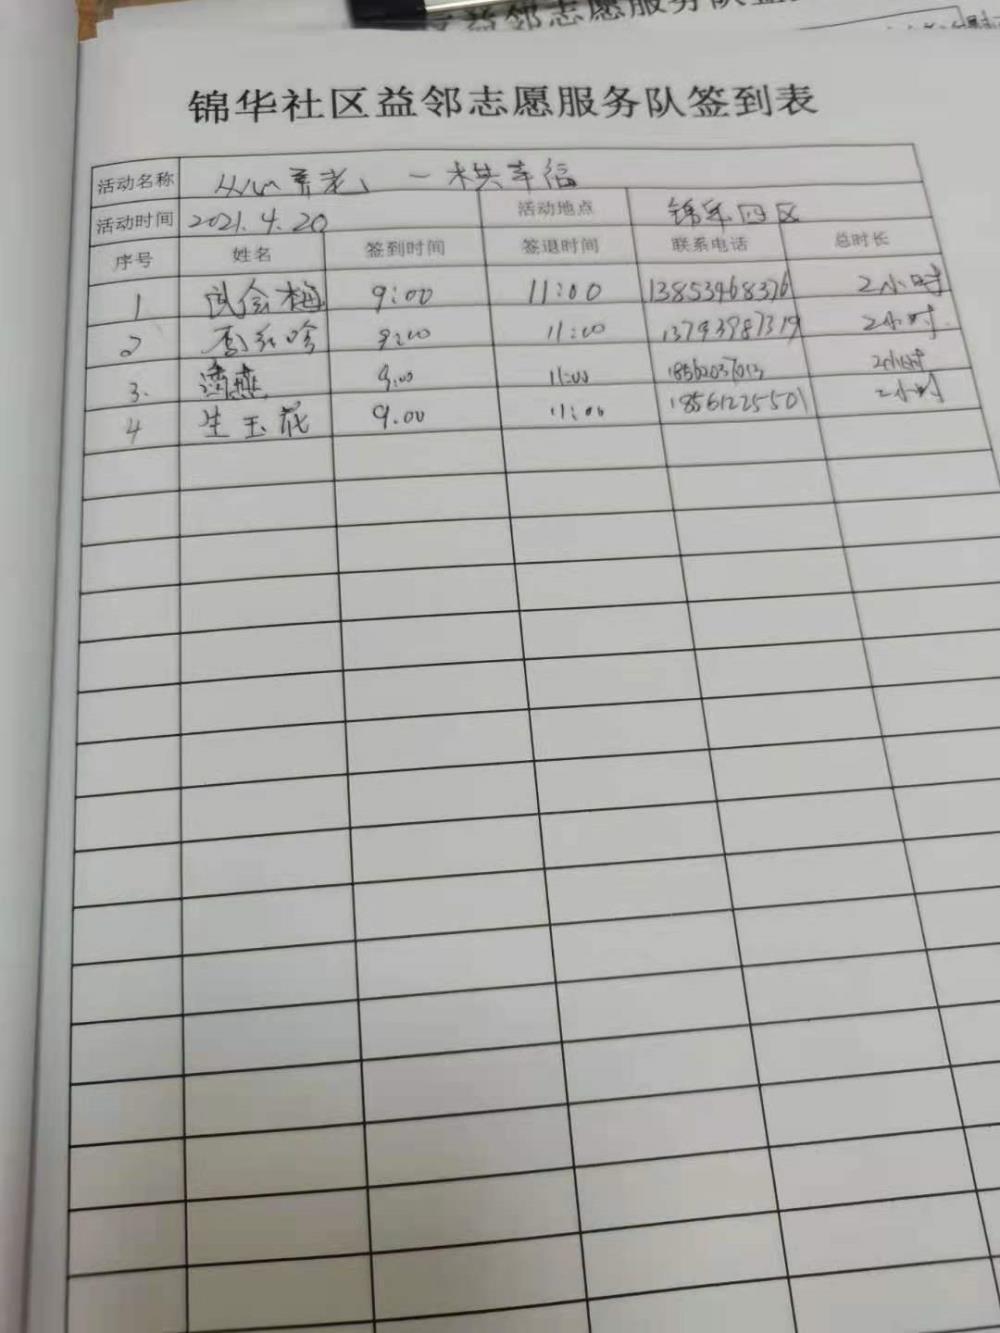 益邻志愿服务队签
锦华社区益邻志愿服务队签到表
活动名称 从心养老、一栱幸福
活动时间 2021.4.20 活动地点 锦华四区
序号 姓名 签到时间 签退时间 联系电话 总时长
1 梅 9:00 11:00 13853468376 2小时
2 李红 9:00 11:00 13793987319 2小时
3. 燕 9:00 11:00 18562037013 2小时
4 生玉花 9.00 11:00 18561225501 2小时